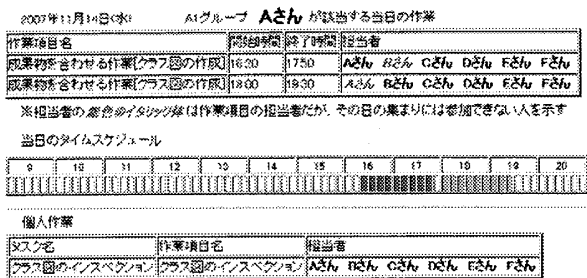 2007年11月14日(水) A1グループ Aさん が該当する当日の作業
作業項目名 開始時間 終了時間 担当者
成果物を合わせる作業[クラス図の作成] 16:20 17:50 Aさん Bさん Cさん Dさん Eさん Fさん
成果物を合わせる作業[クラス図の作成] 18:00 19:30 Aさん Bさん Cさん Dさん Eさん Fさん
※担当者の イタリック体は作業項目の担当者だが、その日の集まりには参加できない人を示す
当日のタイムスケジュール
9 10 11 12 13 14 15 16 17 18 19 20
個人作業
タスク名 作業項目名 担当者
クラス図のインスペクション クラス図のインスペクション Aさん Bさん Cさん Dさん Eさん Fさん